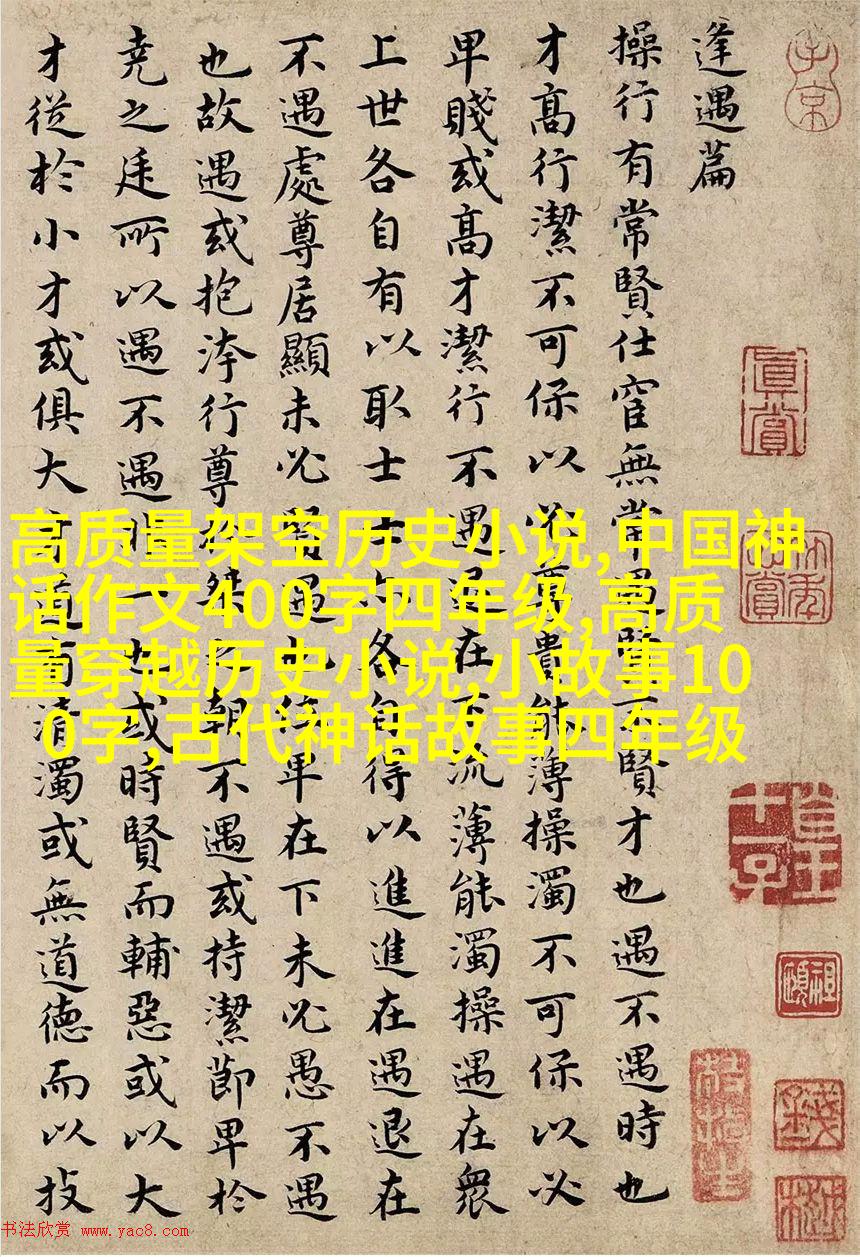 逢遇篇
操行有常賢仕宦無常遇賢不賢才也遇不遇時也
才高行潔不可保以必尊貴能薄操濁不可保以必
卑賤或高才潔行不遇退在下流薄能濁操遇在衆
上世各自有以取士士亦各自得以進進在遇退在
不遇處尊居顯未必賢遇也位卑在下未必愚不遇
也故遇或抱洿行尊於桀之朝不遇或持潔節卑於
堯之廷所以遇不遇非一也或時賢而輔惡或以大
才從於小才或俱大才道有清濁或無道德而以技
真賞
高质量架空历史小说,中国神
话作文400字四年级,高质
量穿越历史小说,小故事10
0字,古代神话故事四年级
书法欣赏 www.yac8.com